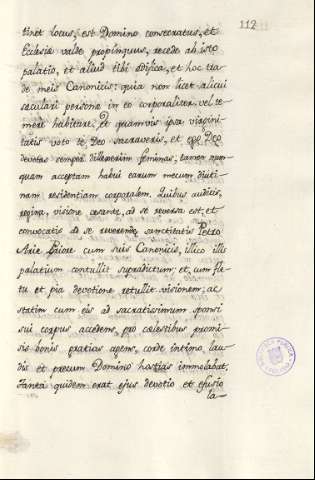 112
tinet locus, est Domino consecratus, et
Ecclesiæ valde propinquus, recede ab isto
palatio, et aliud tibi ædifica, et hoc tra-
de meis Canonicis: quia non licet alicui
seculari personæ in eo corporaliter vel te-
merè habitare. Et quamvis ipsa virgini-
tatis voto te Deo sacraveris, et ego Deo
devotas semper dillexerim feminas, tamen nun-
quam acceptam habui earum mecum diuti-
nam residentiam corporalem. Quibus auditis,
regina, visione cesante, ad se reversa est, et
convocatis ad se reverendæ sanctitatis Petro
Ariæ Priore cum suis Canonicis, illico illis
palatium contullit supradictum; et, cum fle-
tu et pia devotione retullit visionem; ac
statim cum eis ad sacratissimum sponsi
sui corpus accedens, pro cœlestibus promi-
sis bonis gratias agens, corde intimo, lau-
dis et precum Domino hostias immolabat.
Tanta quidem erat ejus devotio et efusio
la-